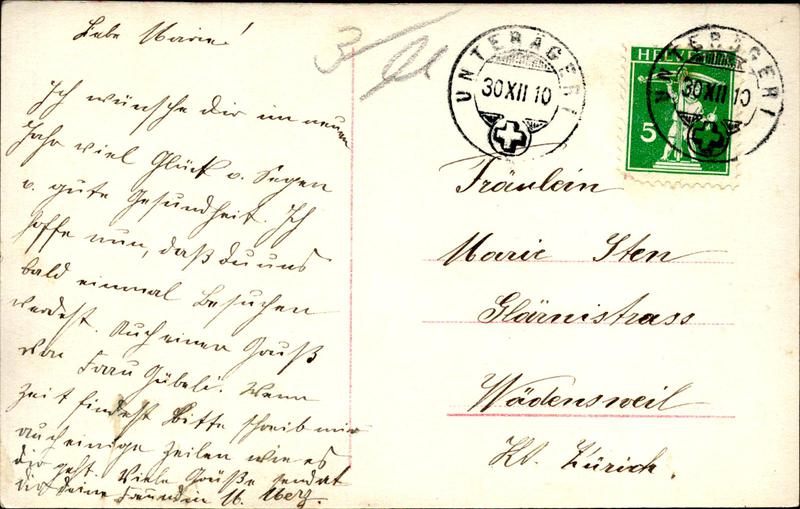 Liebe Marie!
Ich wünsche dir im neuen
Jahr viel Glück u. Segen
u. gute Gesundheit. Ich
hoffe nun, daß du uns
bald einmal besuchen
werdest. Auch einen Gruß
von Frau Gübeli. Wenn
Zeit findest bitte schreib mir
auch einige Zeilen wie es
dir geht. Viele Grüße sendet
dir deine Freundin M. Merz.
UNTERÄGERI
30 XII 10
UNTERÄGERI
30 XII 10
HELVE
5
Fräulein
Marie Sten
Glärnistrass
Wädensweil
Kt. Zürich.